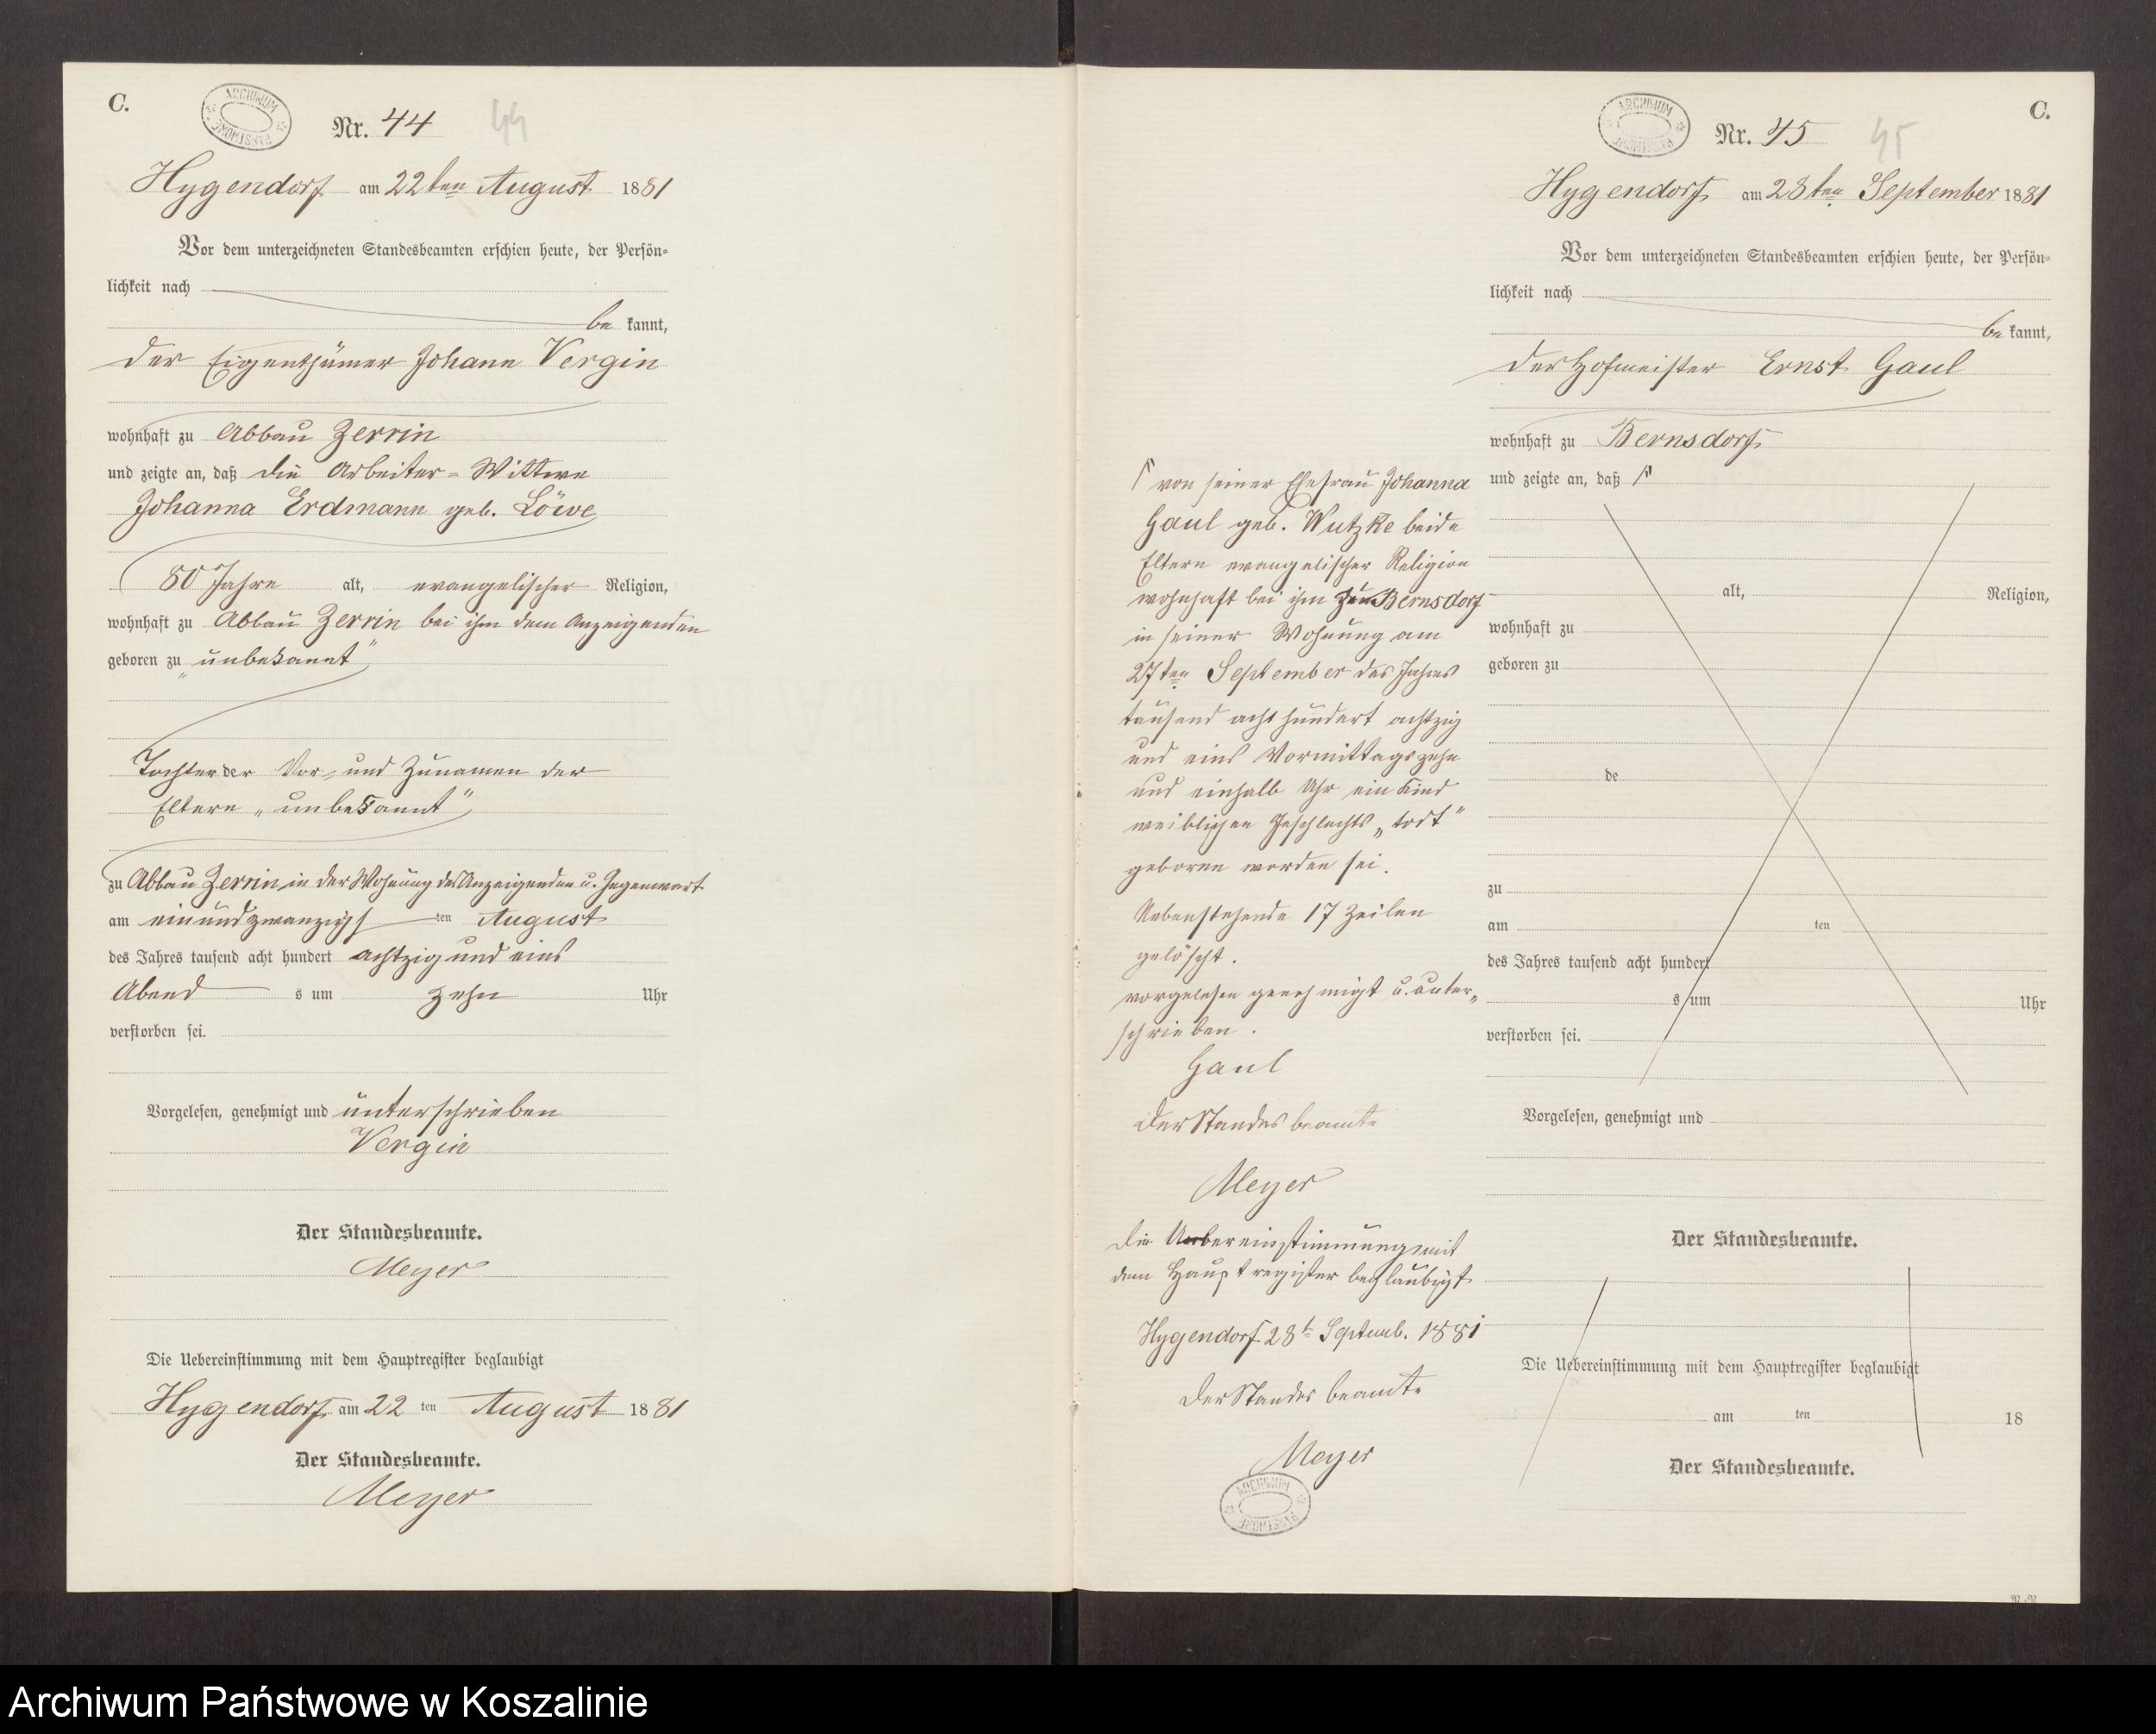 C.
ARCHIWUM PAŃSTWOWE
Nr. 44 44
Hygendorf am 22ten August 1881
Vor dem unterzeichneten Standesbeamten erschien heute, der Persön-
lichkeit nach
be kannt,
der Eigenthümer Johann Vergin
wohnhaft zu Abbau Zerrin
und zeigte an, daß die Arbeiter-Wittwe
Johanna Erdmann geb. Löwe
80 Jahre alt, evangelischer Religion,
wohnhaft zu Abbau Zerrin bei ihm dem Anzeigenden
geboren zu „unbekannt“
Tochter der Vor- und Zunamen der
Eltern „unbekannt“
zu Abbau Zerrin in der Wohnung des Anzeigenden u. Gegenwart
am einundzwanzigsten August
des Jahres tausend acht hundert achtzig und eins
Abends um zehn Uhr
verstorben sei.
Vorgelesen, genehmigt und unterschrieben
Vergin
Der Standesbeamte.
Meyer
Die Uebereinstimmung mit dem Hauptregister beglaubigt
Hygendorf am 22 ten August 1881
Der Standesbeamte.
Meyer
C.
ARCHIWUM PAŃSTWOWE
Nr. 45 45
Hygendorf am 28ten September 1881
Vor dem unterzeichneten Standesbeamten erschien heute, der Persön-
lichkeit nach
be kannt,
der Hofmeister Ernst Gaul
wohnhaft zu Bernsdorf
und zeigte an, daß
von seiner Ehefrau Johanna
Gaul geb. Wutzke beide
Eltern evangelischer Religion
wohnhaft bei ihm zu Bernsdorf
in seiner Wohnung am
27ten September des Jahres
tausend acht hundert achtzig
und eins Vormittags zehn
und einhalb Uhr ein Kind
weiblichen Geschlechts „todt“
geboren worden sei.
Nebenstehende 17 Zeilen
gelöscht.
vorgelesen genehmigt u. unter-
schrieben.
Gaul
Der Standesbeamte
Meyer
Die Uebereinstimmung mit
dem Hauptregister beglaubigt
Hygendorf 28t Septemb. 1881
Der Standesbeamte
Meyer
ARCHIWUM PAŃSTWOWE
alt, Religion,
wohnhaft zu
geboren zu
de
zu
am ten
des Jahres tausend acht hundert
s um Uhr
verstorben sei.
Vorgelesen, genehmigt und
Der Standesbeamte.
Die Uebereinstimmung mit dem Hauptregister beglaubigt
am ten 18
Der Standesbeamte.
Archiwum Państwowe w Koszalinie